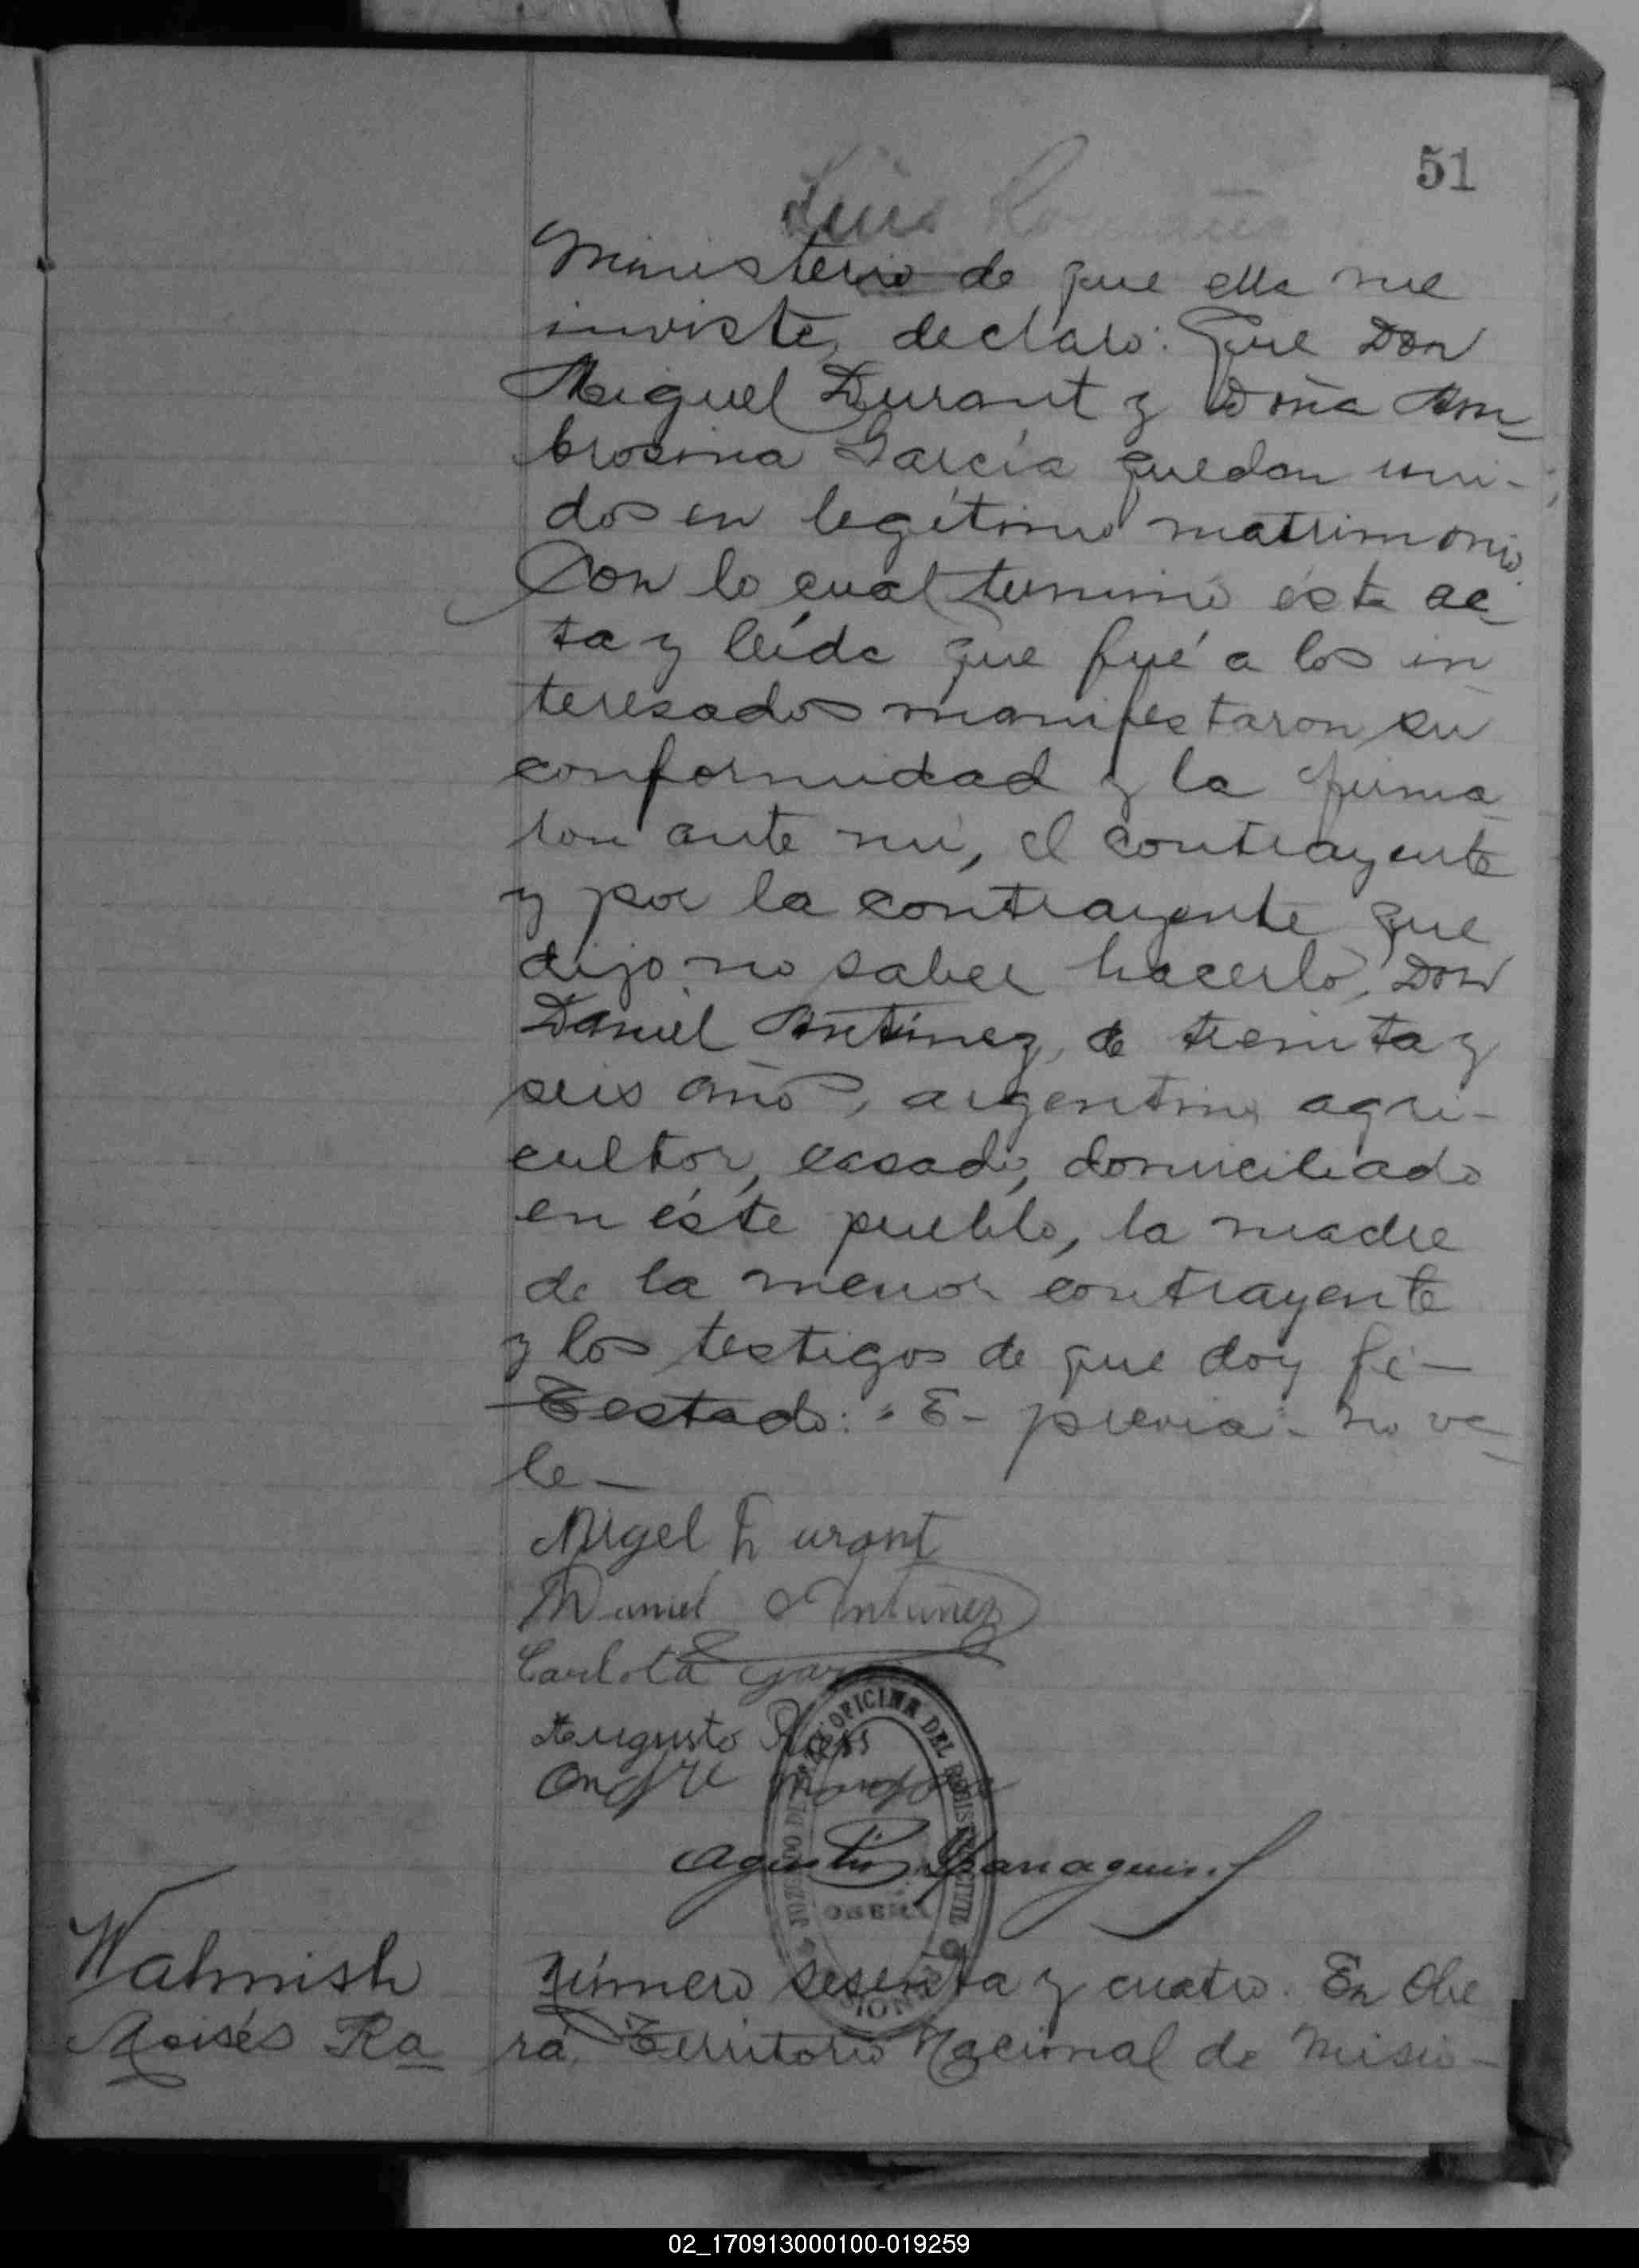 51
Luis
Ministerio de que ella me
inviste, declaro: Que Don
Miguel Durant y Doña Am-
brosina García quedan uni-
dos en legítimo matrimonio.
Con lo cual terminó ésta ac-
ta y leída que fué a los in
teresados manifestaron su
conformidad y la firma
ron ante mí, el contrayente
y por la contrayente que
dijo no saber hacerlo, Don
Daniel Antúnez, de treinta y
seis años, argentino, agri-
cultor, casado, domiciliado
en éste pueblo, la madre
de la menor contrayente
y los testigos de que doy fé-
Testado: "E- previa- no va-
le-
Migel Durant
Daniel Antunez
Carlota
Augusto
OFICINA DEL REGISTRO CIVIL
Agustin
OBERÁ
MISIONES
Wahnish Número sesenta y cuatro. En Obe
Moisés Ra rá, Territorio Nacional de Misio-
02_170913000100-019259